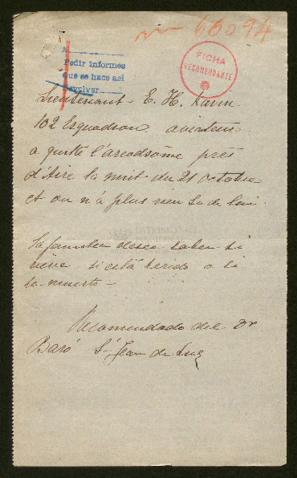 66094
A
Pedir informes
Que se hace asi
FICHA
RECOMENDANTE
Lieutenant - E. H.
102 Esquadron aviateur
a quitté l'aréodsome près
d'Aire la nuit du 21 octobre
et on n'a plus rien su de lui
La familia desea saber si
vive si está herido o si
ha muerto -
Recomendado del Dr
Baró St Jean de Luz